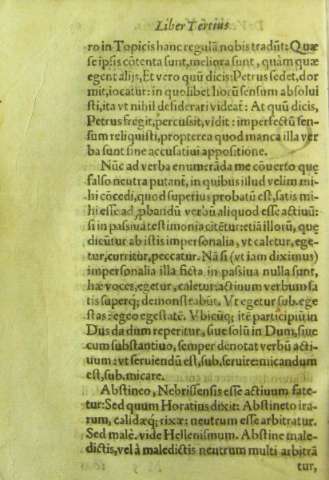 Liber Tertius.
ro in Topicis hanc regulã nobis tradũt: Quæ
se ipsis cõtenta sunt, meliora sunt, quàm quæ
egent alijs, Et vero quũ dicis: Petrus sedet, dor
mit, iocatur: in quolibet horũ sensum absolui
sti, ita vt nihil desiderari videat̃: At quũ dicis,
Petrus fregit, percussit, vidit: imperfectũ sen-
sum reliquisti, propterea quod manca illa ver
ba sunt sine accusatiui appositione.
Nũc ad verba enumerãda me cõuerto quę
falso neutra putant, in quibus illud velim mi-
hi cõcedi, quod superius probatũ est, satis mi-
hi esse ad ꝓbandũ verbũ aliquod esse actiuũ:
si in passiua testimonia citẽtur: etiã illorũ, quę
dicũtur ab istis impersonalia, vt caletur, ege-
tur, curritur, peccatur. Nã si (vt iam diximus)
impersonalia illa ficta in passiua nulla sunt,
hæ voces, egetur, caletur: actiuum verbum sa
tis superq; demonstrabũt. Vt egetur sub. ege
stas: egeo egestatẽ. Vbicũq; itẽ participiũ in
Dus da dum reperitur, siue solũ in Dum, siue
cum substantiuo, semper denotat verbũ acti-
uum: vt seruiendũ est, sub. seruire: micandum
est, sub. micare.
Abstineo, Nebrissensis esse actiuum fate-
tur: Sed quum Horatius dixit: Abstineto ira-
rum, calidæq; rixæ: neutrum esse arbitratur.
Sed malè. vide Hellenismum. Abstine male-
dictis, vel à maledictis neutrum multi arbitrã
tur,